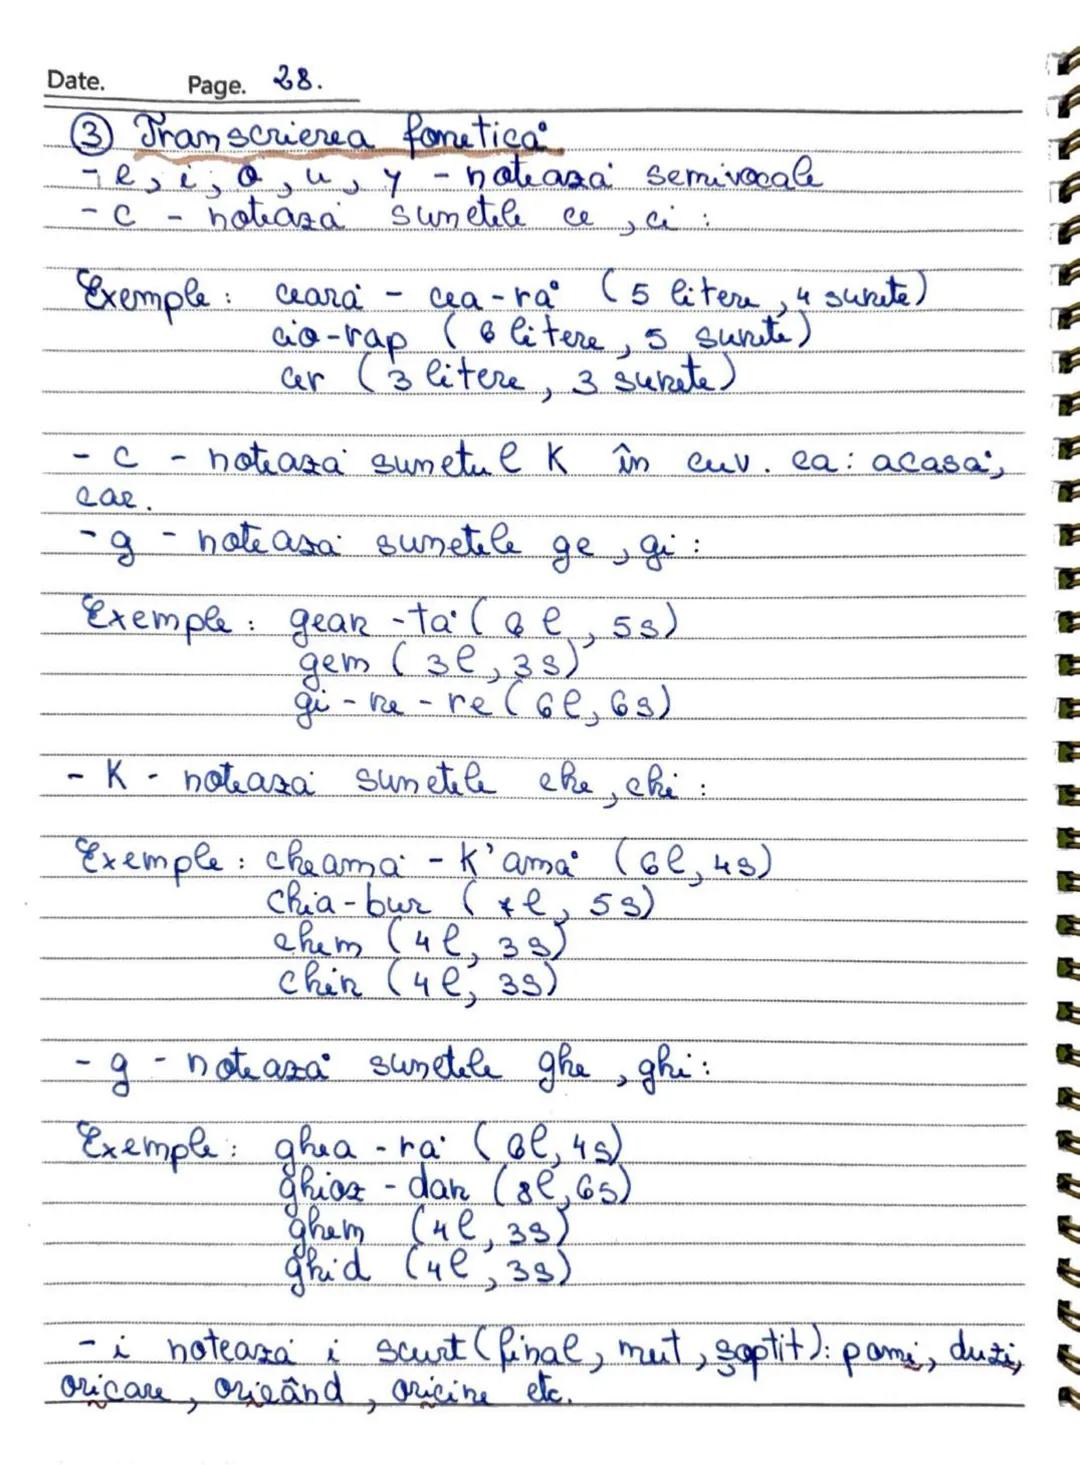 Date. Page. 28.
③ Transcrierea fonetică
- e, i, o, u, y - notează semivocale
- c - notează sunetele ce, ci :
Exemple : ceară - cea-ră (5 litere, 4 sunete)
cio-rap (6 litere, 5 sunete)
cer (3 litere, 3 sunete)
- c - notează sunetul K în cuv. ca: acasă,
cac.
- g - notează sunetele ge, gi :
Exemple : gean-tă (6 l, 5s)
gem (3l, 3s)
gi-ne-re (6l, 6s)
- K - notează sunetele che, chi :
Exemple : cheamă - K'amă (6l, 4s)
chia-bur (7l, 5s)
chem (4l, 3s)
chin (4l, 3s)
- g - notează sunetele ghe, ghi :
Exemple : ghea-ră (6l, 4s)
ghioz-dan (8l, 6s)
ghem (4l, 3s)
ghid (4l, 3s)
- i notează i scurt (final, mut, șoptit): pomi, duzi,
oricare, oricând, oricine etc.